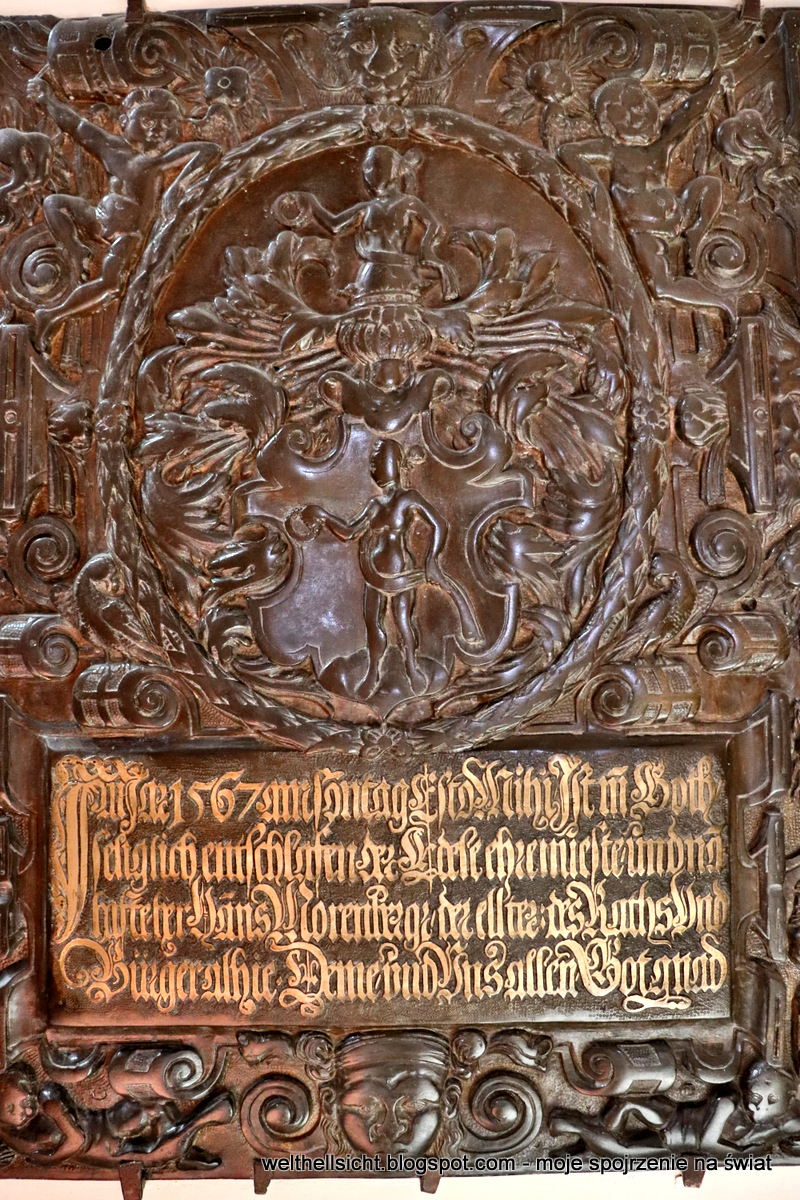 Im Jar 1567 am sontag Esto Mihi Ist in Goth
seliglich entschlafen der Edele ehrnueste
her Hans Morenberger der elter des Raths Vnd
Bürger alhie Deme vnd Vns allen Got gnad
welthellsicht.blogspot.com - moje spojrzenie na świat